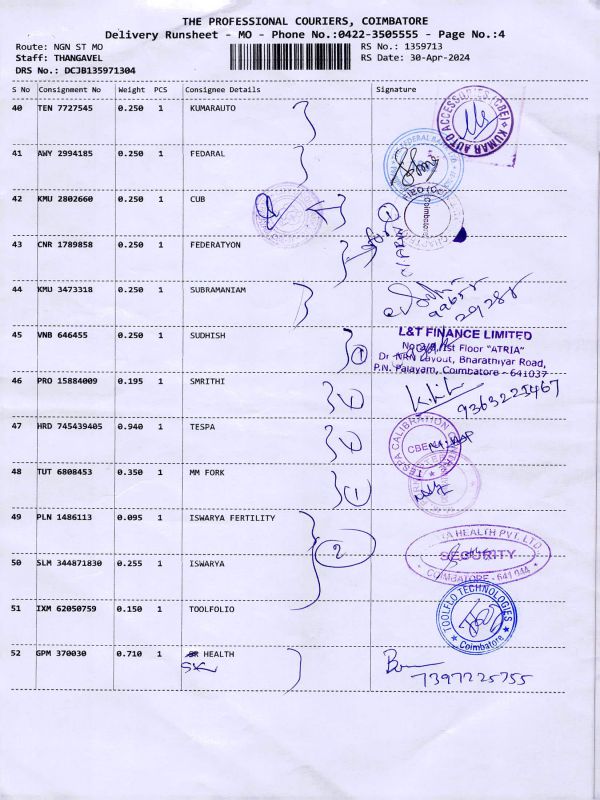 THE PROFESSIONAL COURIERS, COIMBATORE
Delivery Runsheet - MO - Phone No.:0422-3505555 - Page No.:4
Route: NGN ST MO RS No.: 1359713
Staff: THANGAVEL RS Date: 30-Apr-2024
DRS No.: DCJB135971304
S No Consignment No Weight PCS Consignee Details Signature
40 TEN 7727545 0.250 1 KUMARAUTO
KUMAR AUTO ACCESSORIES (CBE)
41 AWY 2994185 0.250 1 FEDARAL
42 KMU 2802660 0.250 1 CUB
Coimbatore
43 CNR 1789858 0.250 1 FEDERATYON
44 KMU 3473318 0.250 1 SUBRAMANIAM
45 VNB 646455 0.250 1 SUDHISH 1
L&T FINANCE LIMITED
1st Floor "ATRIA"
Layout, Bharathiyar Road,
P.N. Palayam, Coimbatore - 641037
46 PRO 15884009 0.195 1 SMRITHI 1
9363221467
47 HRD 745439405 0.940 1 TESPA 1
TESPA CALIBRATION
CBE
48 TUT 6808453 0.350 1 MM FORK 1
49 PLN 1486113 0.095 1 ISWARYA FERTILITY
2
HEALTH PVT. LTD.
SECURITY
COIMBATORE - 641 044
50 SLM 344871830 0.255 1 ISWARYA
51 IXM 62050759 0.150 1 TOOLFOLIO
TOOLFLO TECHNOLOGIES
Coimbatore
52 GPM 370030 0.710 1 SR HEALTH
SK
7397225755